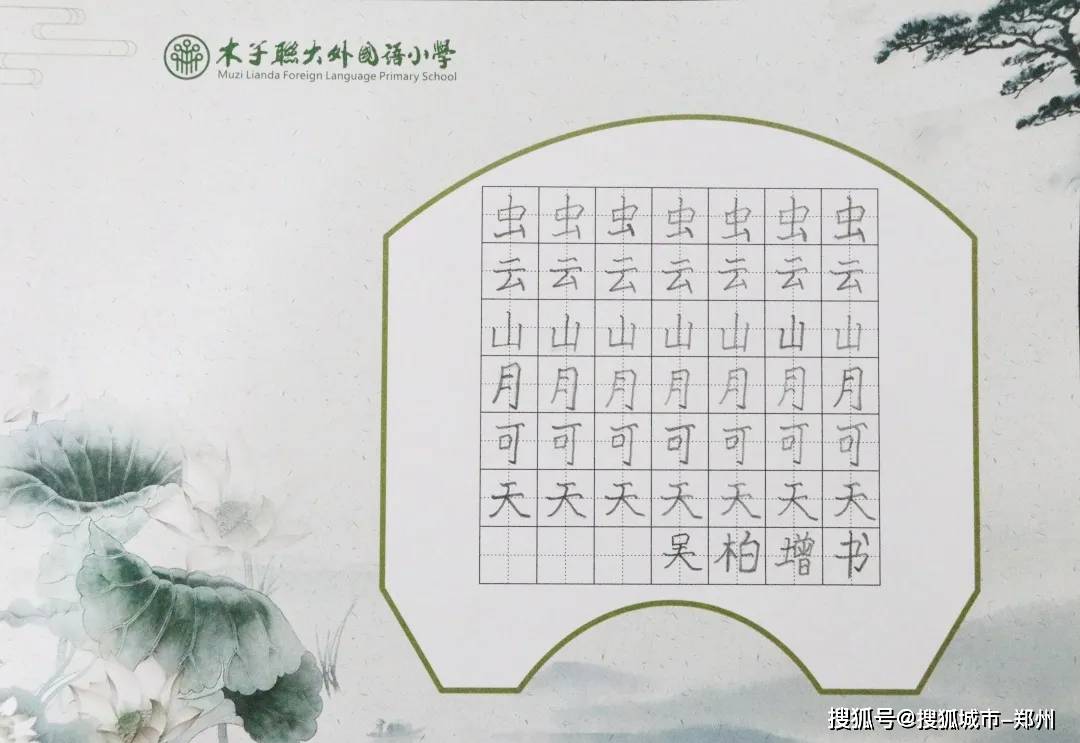 木子聯大外國语小學
Muzi Lianda Foreign Language Primary School
虫虫虫虫虫虫虫
云云云云云云云
山山山山山山山
月月月月月月月
可可可可可可可
天天天天天天天
吴柏增书
搜狐号@搜狐城市-郑州